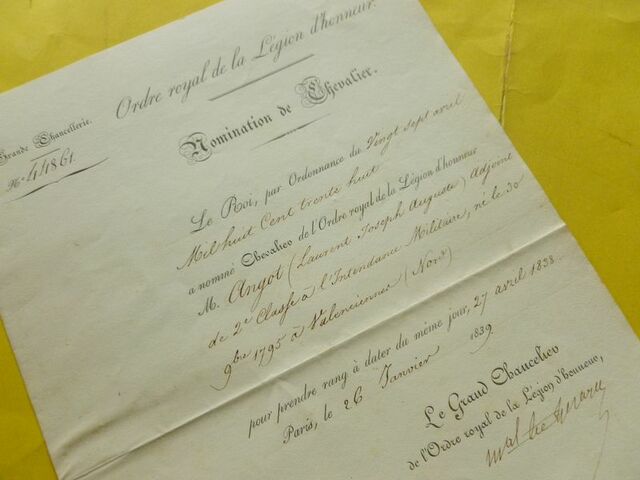 Ordre royal de la Légion d'honneur.
Grande Chancellerie.
Nº 44861.
Nomination de Chevalier.
Le Roi, par Ordonnance du Vingt sept avril
Mil huit Cent trente huit
a nommé Chevalier de l'Ordre royal de la Légion d'honneur
M. Angot (Laurent Joseph Auguste) Adjoint
de 2e Classe à l'Intendance Militaire, né le 30
9bre 1795 à Valenciennes (Nord)
pour prendre rang à dater du même jour, 27 avril 1838.
Paris, le 26 Janvier 1839.
Le Grand Chancelier
de l'Ordre royal de la Légion d'honneur,